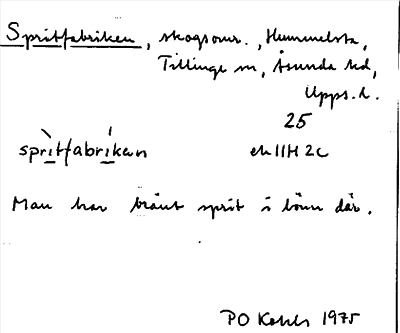 Spritfabriken, skogsomr., Hummelsta,
Tillinge sn, Åsunda hd,
Upps. l.
25
sprìtfabríken ek 11H 2c
Man har bränt sprit i lönn där.
PO Kahls 1975